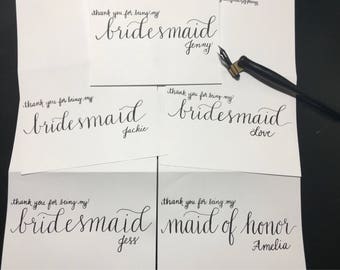 thank you for being my
bridesmaid
Jenny
thank you for being my
bridesmaid
Jackie
thank you for being my
bridesmaid
Love
thank you for being my
bridesmaid
Jess
thank you for being my
maid of honor
Amelia